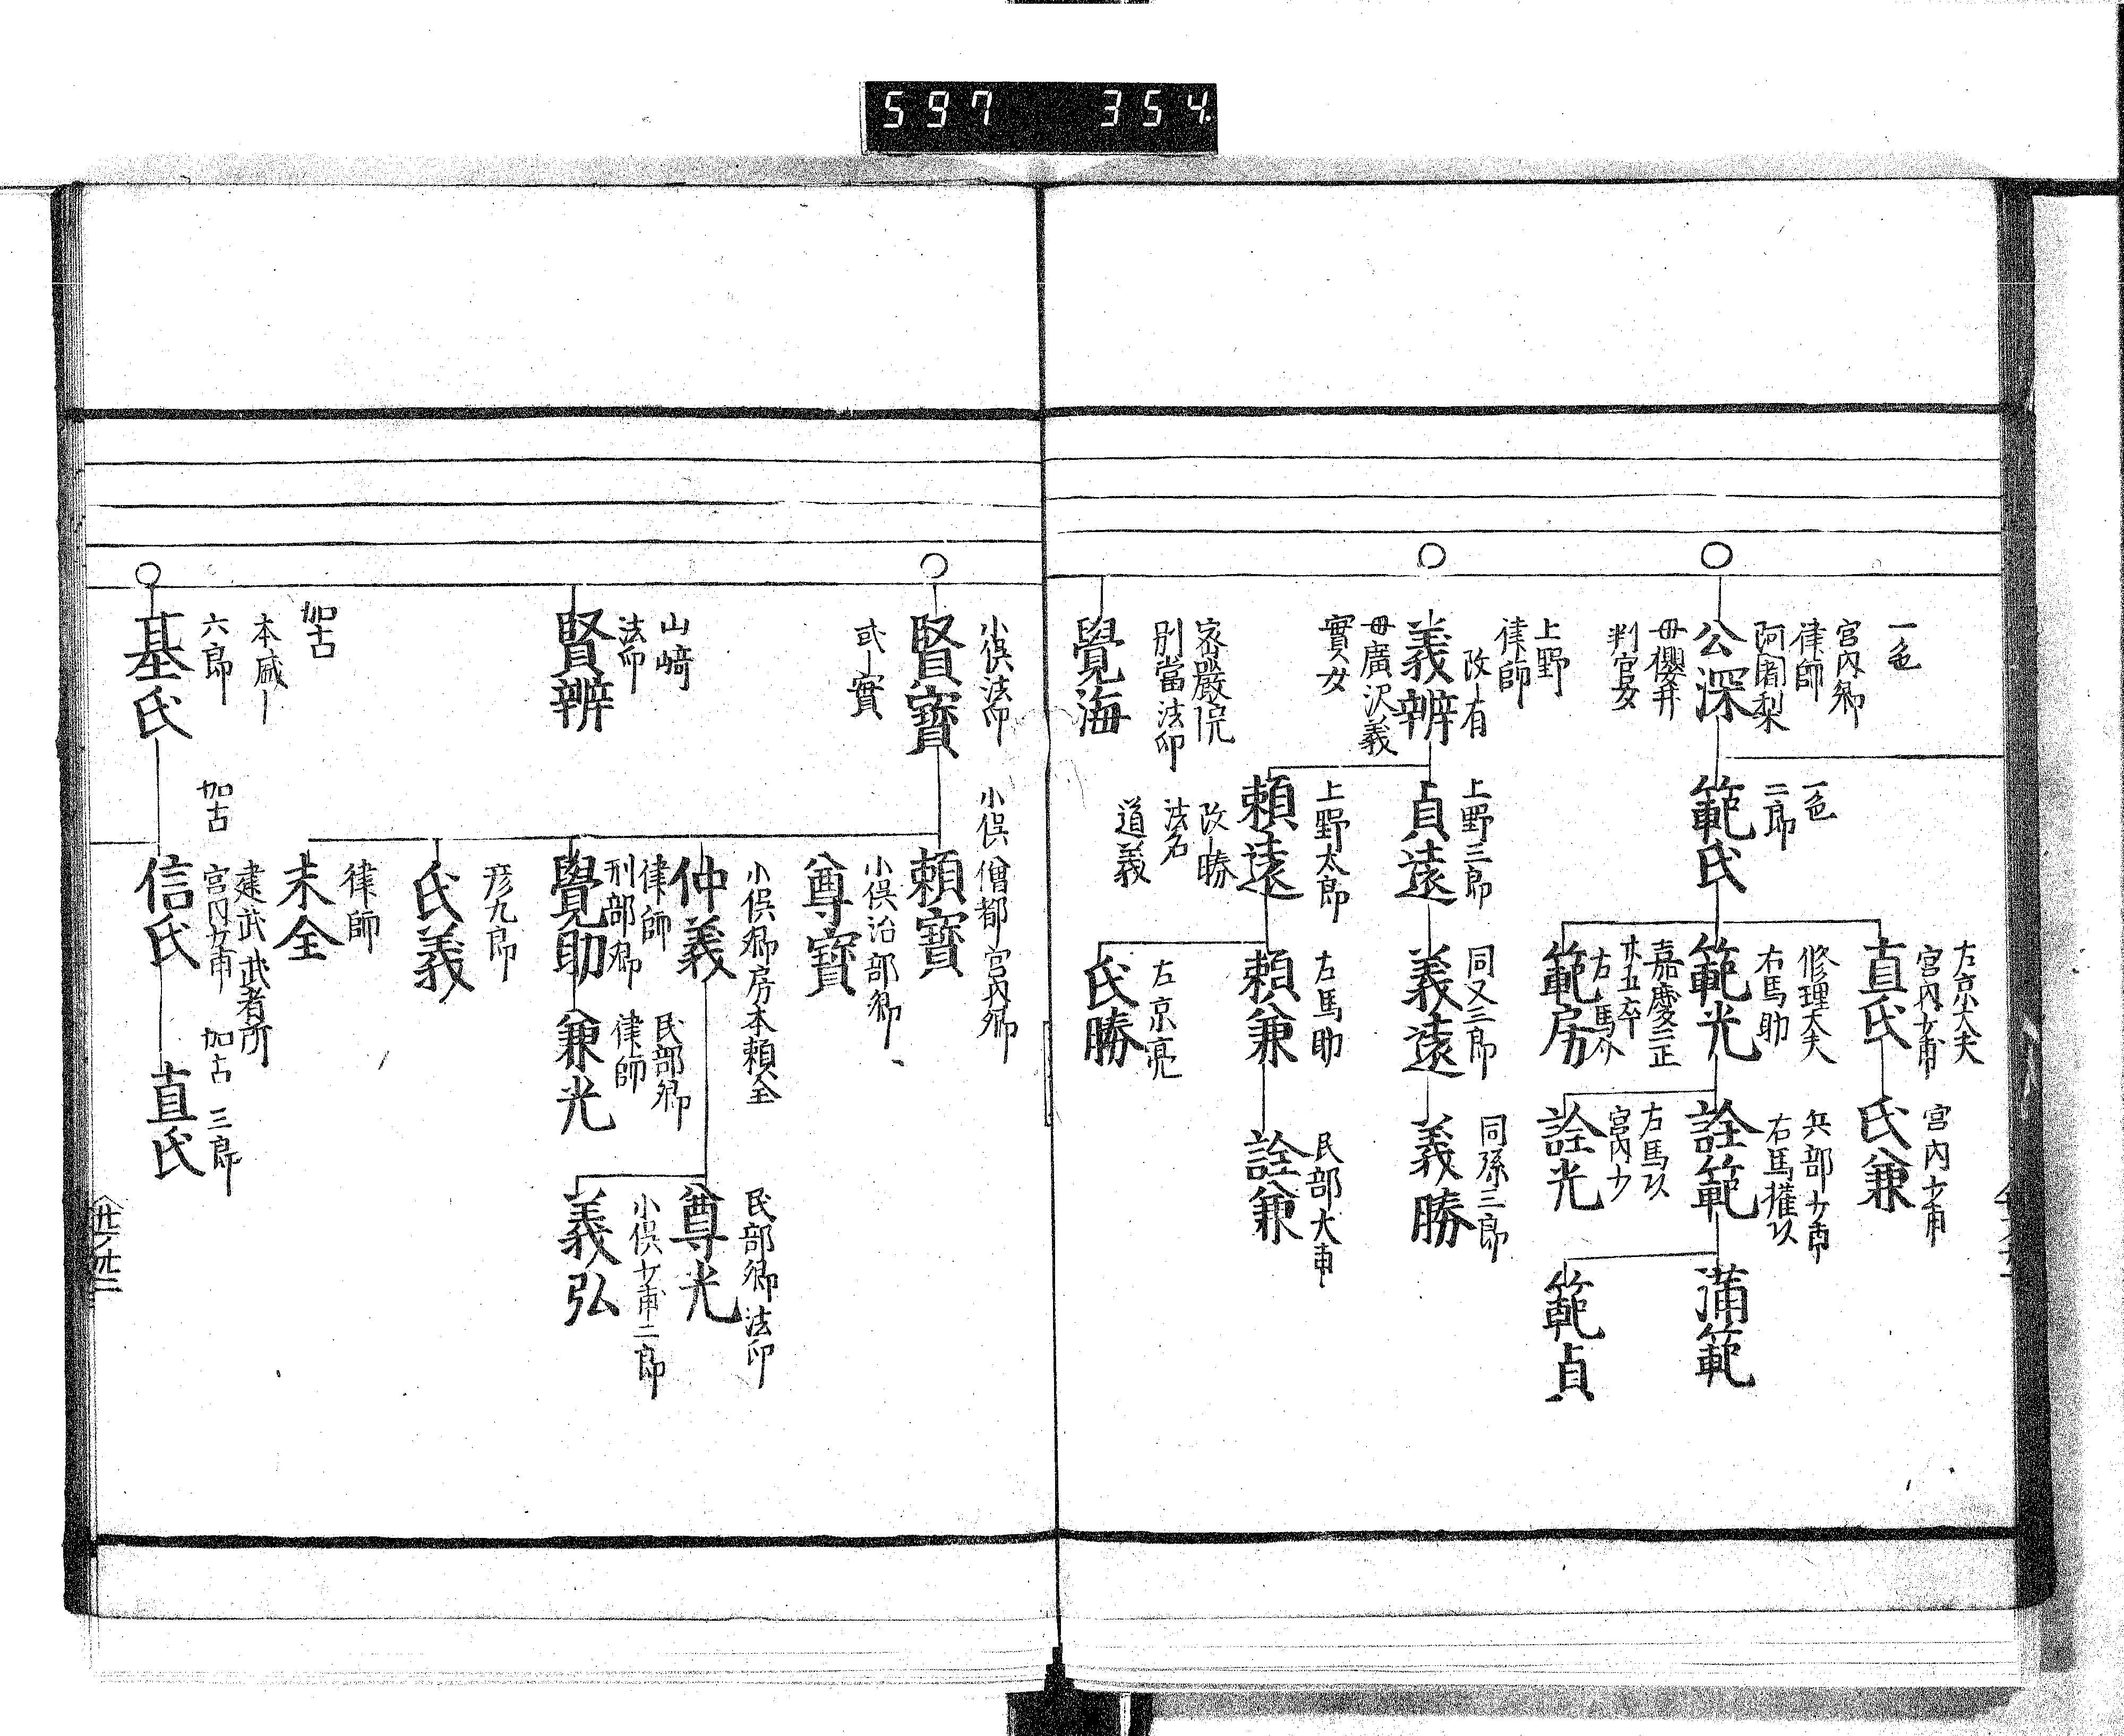 597 354.
一色
宮内卿
律師
阿闍梨
公深
母櫻井
判官女
一色
二郎
範氏
左京大夫
宮内少甫
直氏
宮内少甫
氏兼
修理大夫
右馬助
範光
兵部少甫
右馬權以
詮範
滿範
範貞
左馬以
宮内少
詮光
嘉慶三正
廿五卒
右馬介
範房
上野
律師
改有
義辨
母廣沢義
實女
上野三郎
貞遠
同又三郎
義遠
同孫三郎
義勝
上野太郎
頼遠
改勝
法名
道義
左馬助
頼兼
民部大甫
詮兼
左京亮
氏勝
密嚴院
別當法印
覺海
小俣法印
賢寳
或實
小俣僧都宮内卿
頼寳
小俣治部卿
尊寳
小俣卿房本頼全
仲義
民部卿法印
尊光
小俣少甫二郎
義弘
律師
刑部卿
覺助
民部卿
律師
兼光
彦九郎
氏義
律師
未全
山﨑
法印
賢辨
加古
本威
六郎
基氏
加古
建武武者所
宮内少甫
信氏
加古三郎
直氏